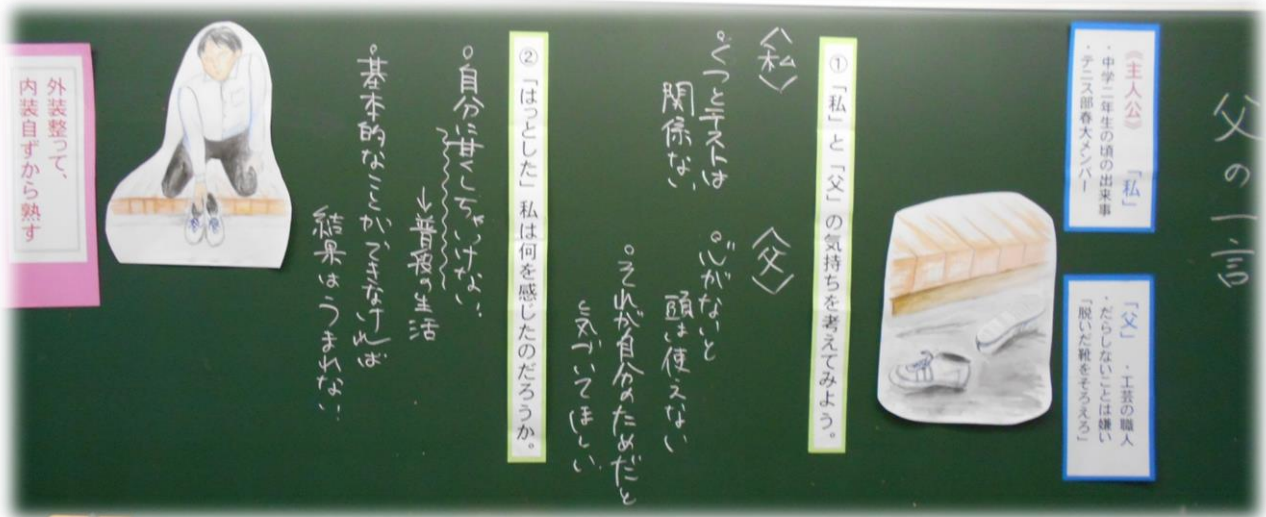 父の一言
《主人公》「私」
・中学二年生の頃の出来事
・テニス部春大メンバー
「父」・工芸の職人
・だらしないことは嫌い
「脱いだ靴をそろえろ」
①「私」と「父」の気持ちを考えてみよう。
〈私〉
・くつとテストは
関係ない
〈父〉
・心がないと
頭は使えない
・それが自分のためだと
気づいてほしい
②「はっとした」私は何を感じたのだろうか。
・自分に甘くしちゃいけない。
↓普段の生活
・基本的なことができなければ
結果はうまれない。
外装整って、
内装自ずから熟す